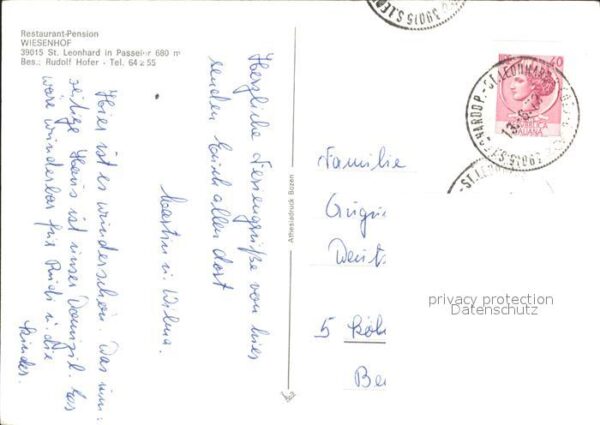 Restaurant-Pension
WIESENHOF
39015 St. Leonhard in Passeier 680 m
Bes.: Rudolf Hofer - Tel. 64 2 55
Herzliche Feriengrüße von hier
senden Euch allen dort
Martin u. Wilma.
Hier ist es wunderschön. Das um-
seitige Haus ist unser Domizil. Es
wäre wunderbar für Euch u. die
Kinder.
Athesiadruck Bozen
Familie
5 Köl
Be
40
REPUBBLICA
ITALIANA
39015 S.LEONARDO P. - ST.LEONHARD
39015 S.LEO
ST.LEON
privacy protection
Datenschutz